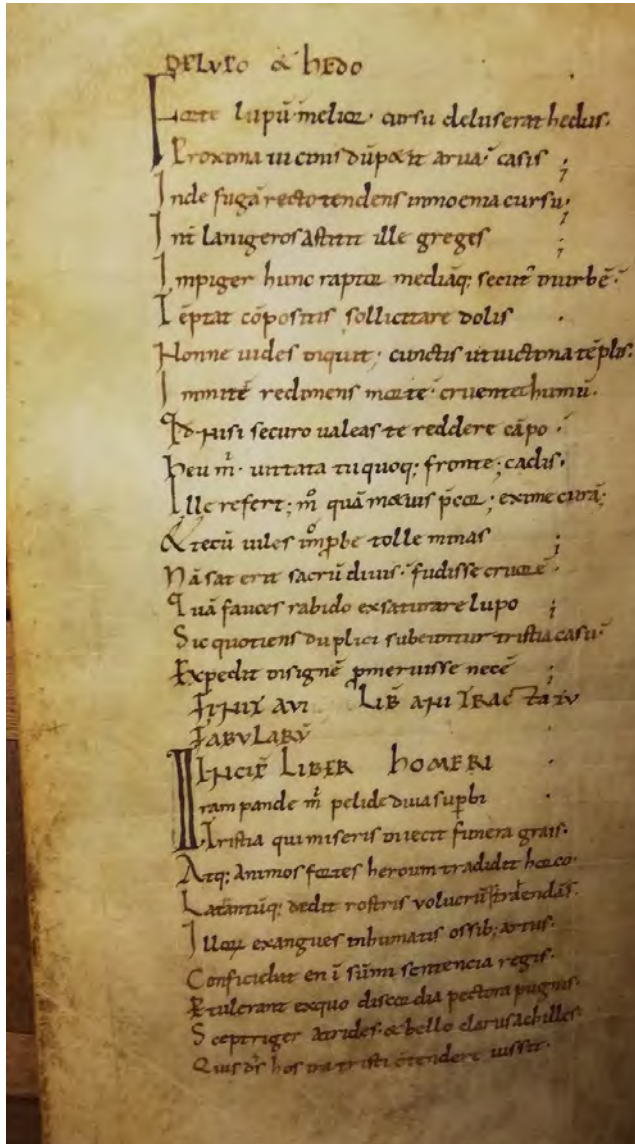 DE LVPO & hEDO
Forte lupū melior · cursu deluserat hedus·
Proxima uicinis dū petit arua· casis ;
Inde fugā recto tendens inmoenia cursu·
Inť lanigeros astitit ille greges ;
Impiger hunc raptor mediāq; secut' inurbē·
Tēptat cōpositis sollicitare dolis ·
Nonne uides inquit · cunctis utuictima tēplis·
Inmitē redimens morte · cruentet humū·
Qd nisi securo ualeas te reddere cāpo ·
heu m̊ · uittata tu quoq; fronte ; cadis·
Ille refert ; m̊ quā metuis p̄cor ; exime curā ;
& tecū uiles imp̄be tolle minas ;
Nā sat erit sacrū diuis · fudisse cruorē ·
Quā fauces rabido exsaturare lupo ;
Sic quotiens duplici subeuntur tristia casu·
Expedit insignē p̄meruisse necē ;
FINIT AVI LIB ANI TRACTATV
FABVLARV̄
INCIP̄ LIBER hOMERI ·
Iram pande m̊ pelide diua sup̄bi ·
Tristia qui miseris iniecit funera grais·
Atq; Animos fortes heroum tradidit horco·
Latrantūq; dedit rostris volucrū trahendas·
Illorum exangues inhumatis ossib; artus·
Conficiebat en ī sūmi sentencia regis·
Ptulerant exquo discordia pectora pugnis·
Sceptriger Atrides· & bello clarus achilles·
Quis ds̄ hos ira tristi ctendere iussit·